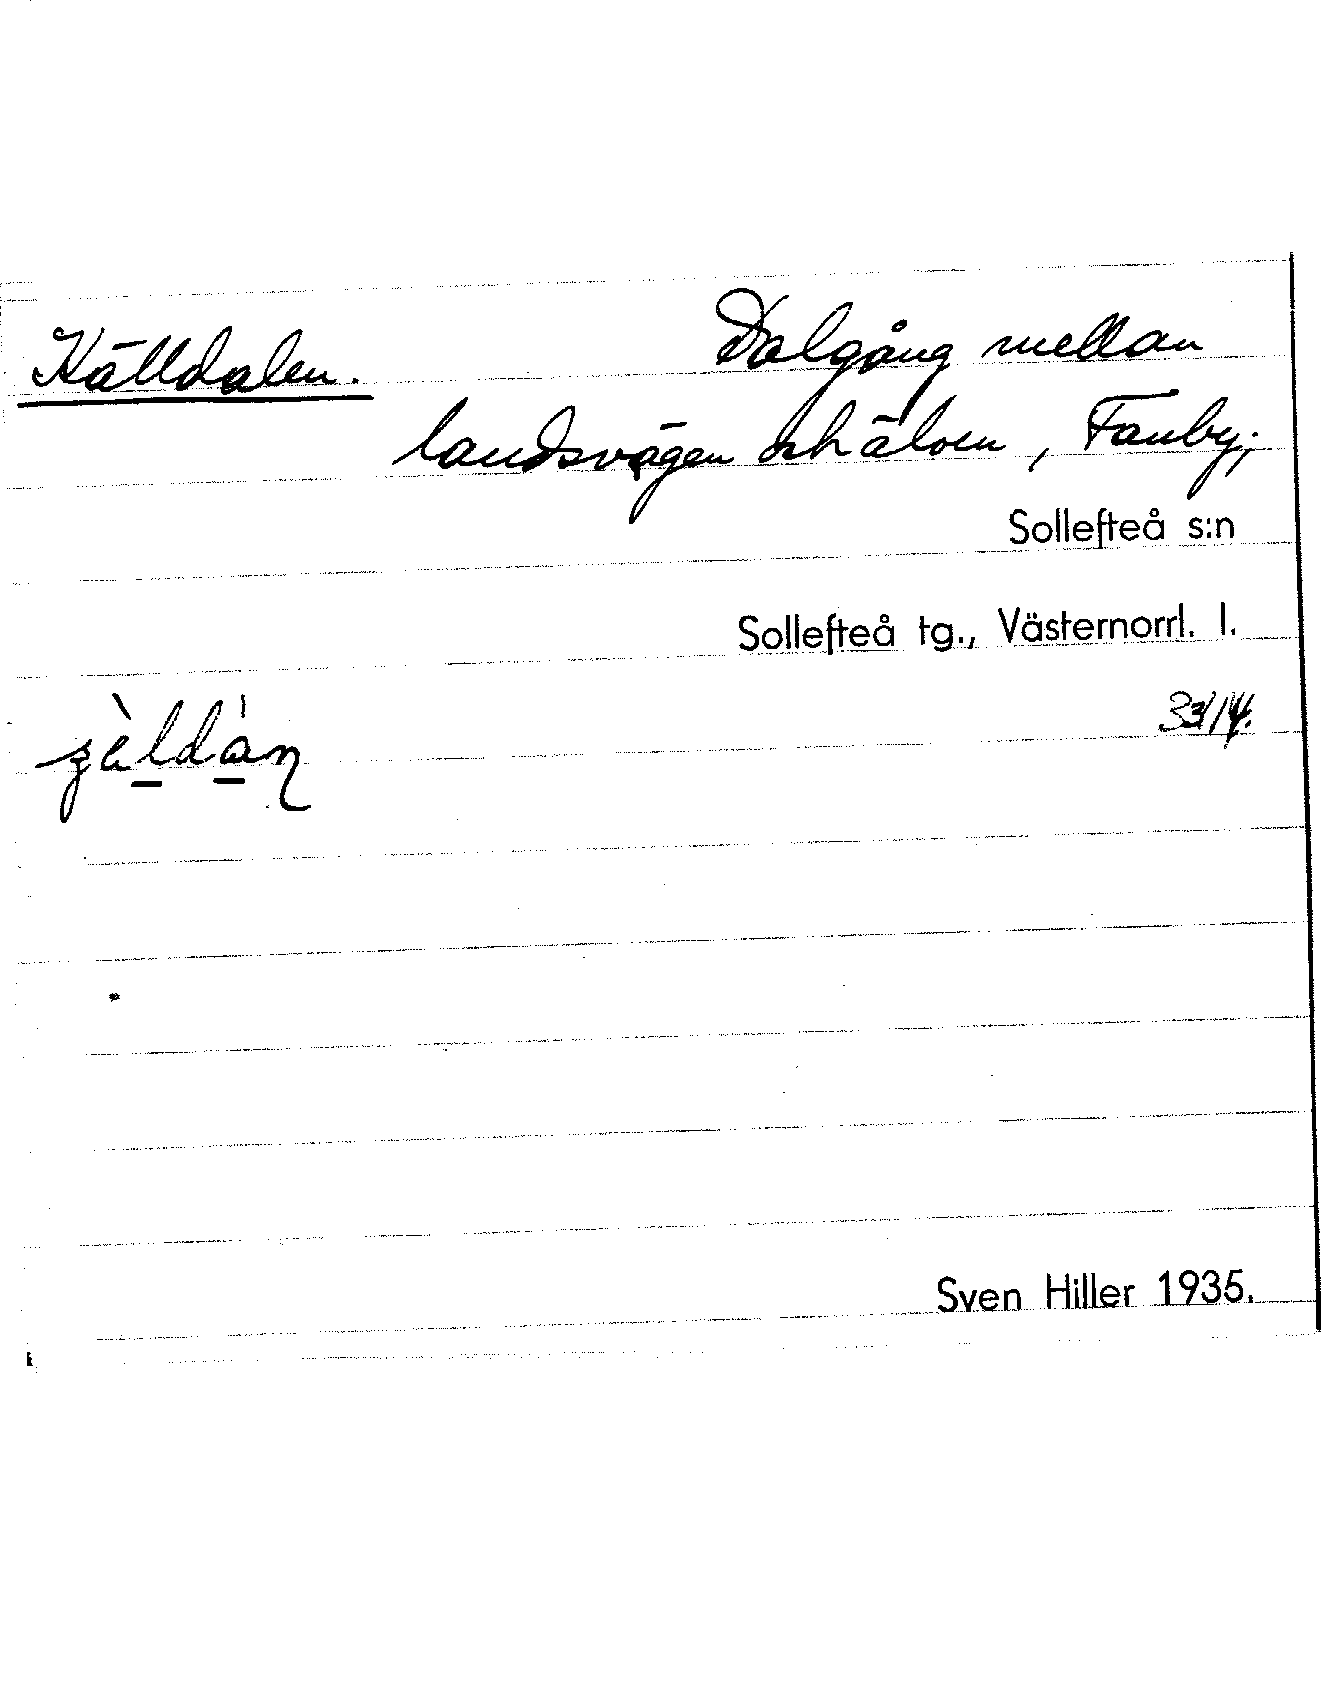 Källdalen. Dalgång mellan
landsvägen och älven, Fanby;
Sollefteå s:n
Sollefteå tg., Västernorrl. l.
Sven Hiller 1935.